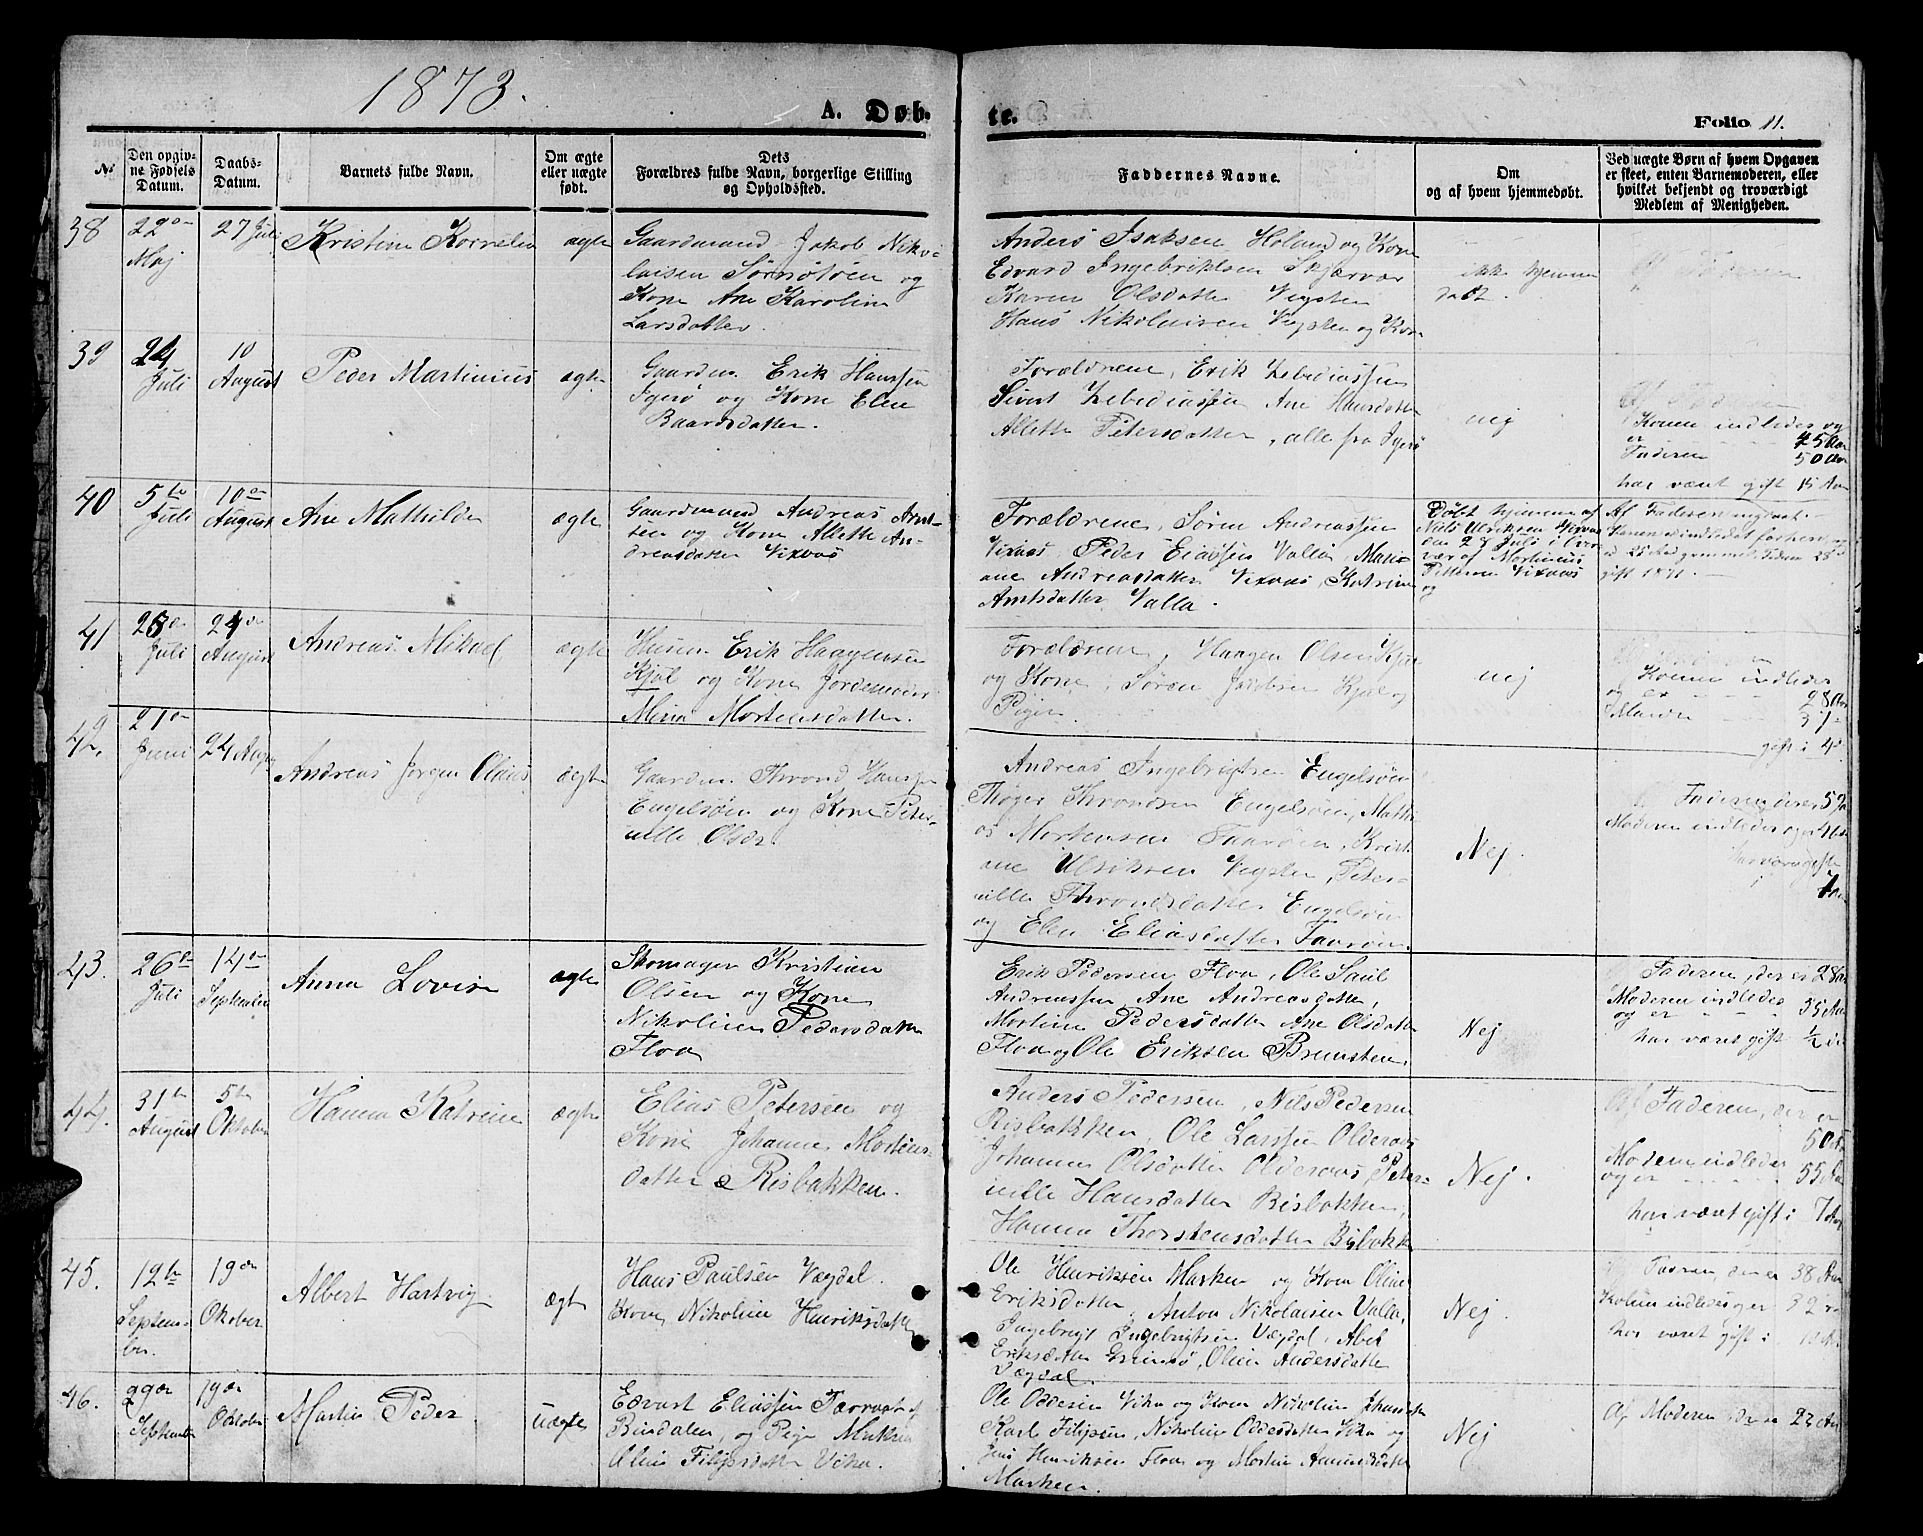 1873.
A. Døb-
te.
Folio 11.
№
Den opgiv-
ne Fødsels
Datum.
Daabs-
Datum.
Barnets fulde Navn.
Om ægte
eller uægte
født.
Dets
Forældres fulde Navn, borgerlige Stilling
og Opholdssted.
Faddernes Navne.
Om
og af hvem hjemmedøbt.
Ved uægte Børn af hvem Opgaven
er skeet, enten Barnemoderen, eller
hvilket bekjendt og troværdigt
Medlem af Menigheden.
38
22de
Maj
27 Juli
Kristine Kornelia
ægte
Gaardmand Jakob Niko-
laisen Sørnøsøen og
Kone Ane Karoline
Larsdatter.
Anders Isaksen Holand og Kone
Edvard Ingebriktsen Skjærvær
Karen Olsdatter Vegsten
Hans Nikolaisen Vegsten og Kone
ikke hjemme
døbt.
Af Faderen
39
24
Juli
10
August
Peder Martinius
ægte
Gaardm. Erik Hanssen
Igerø og Kone Elen
Baardsdatter.
Forældrene, Erik Zebediassen
Sivert Zebediassen Ane Hansdatter
Alette Petersdatter, alle fra Igerø
nej
Af Faderen
Konen indledes og
er 45 Aar
Faderen 50 Aar
har været gift 15 Aar
40
5te
Juli
10de
August
Ane Mathilde
ægte
Gaardmand Andreas Arnt-
sen og Kone Alette An-
dreasdatter Vixaas
Forældrene, Søren Andreassen
Vixaas, Peder Eliassen Valla, Mari-
ane Andreasdatter Vixaas, Katrine
Arntsdatter Valla.
Døbt hjemme af
Niels Ulriksen Vixaas
den 27 Juli i Over
vær af Martinius
Pettersen Vixaas
og
Af Faderen
gift 1871.
41
23de
Juli
24de
August
Andreas Mikael
ægte
Husm. Erik Haagensen
Kjøl og Kone Jordemoder
Maria Mortensdatter.
Forældrene, Haagen Olsen Kjøl
og Kone, Søren Jakobsen Kjøl og
Pigen
nej
Konen indledes
og er 28 Aar
Manden 37
gift i 4
42.
21de
Juni
24 Aug
Andreas Jørgen Olaus
ægte
Gaardm. Thrond Hanssen
Engelsøen og Kone Peter-
nille Olsdr.
Andreas Ingebrigtsen Engelsøen
Thøger Throndsen Engelsøen, Mathi-
as Mortensen Taarøen, Kristi-
ane Ulriksen Vegsten, Peter-
nille Throndsdatter Engelsøen
og Elen Eliasdatter Taarøen.
Nej.
Faderen der er 52 Aar
Moderen indledes og er 46 Aar
har været gift
i Aar
43.
26de
Juli
14de
September
Anna Lovise
ægte
Skomager Kristian
Olsen og Kone
Nikoline Pedersdatter
Floa
Erik Pedersen Floa, Ole Paul
Andreassen, Ane Andreasdatter,
Martine Pedersdatter Ane Olsdatter
Floa og Ole Eriksen Bremsten.
Nej
Faderen, der er 28 Aar
Moderen indledes
og er 35 Aar
har været gift 1/2 Aar
44.
31te
August
5te
Oktober
Hanna Katrine
ægte
Elias Petersen og
Kone Johanna Mortens-
datter Risbakken.
Anders Pedersen, Nils Pedersen
Risbakken, Ole Larssen Olderaas
Johanna Olsdatter Olderaas, Peter-
nille Hansdatter Risbakken,
Hanna Thorstensdatter Risbakk
Nej.
Af Faderen, der er
50 Aar
Moderen indledes
og er 55 Aar
har været gift i 7 Aar
45.
12te
Septem-
ber.
19de
Oktober
Albert Hartvig
ægte
Hans Paulsen Vægdal.
Kone, Nikoline Henriksdatter
Ole Henriksen Marken og Kone Oline
Eriksdatter, Anton Nikolaisen Valla,
Ingebrigt Ingebrigtsen Vægdal, Abel
Eriksdatter Grimsø, Oline Andersdatter
Vægdal.
Nej.
Faderen, der er 38 Aar
Konen indledes og er 32 Aar
har været gift i
46.
29de
September
19de
Oktober
Martin Peder
uægte
Edvart Eliassen Tarvas af
Bindalen, og Pige
Oline Filipsdatter Vika.
Ole Oddesen Vika og Kone Nikoline Johansdatter
Karl Filipsen, Nikoline Oddesdatter Vika og
Jens Henriksen Floa og Martine Amundsdatter
Marken.
Nej
Af Moderen der er 23 Aar